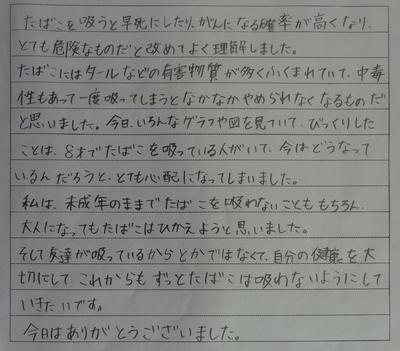 たばこを吸うと早死にしたり、がんになる確率が高くなり、
とても危険なものだと改めてよく理解しました。
たばこにはタールなどの有害物質が多くふくまれていて、中毒
性もあって一度吸ってしまうとなかなかやめられなくなるものだ
と思いました。今日、いろんなグラフや図を見ていて、びっくりした
ことは、8才でたばこを吸っている人がいて、今はどうなって
いるんだろうと、とても心配になってしまいました。
私は、未成年のままでたばこを吸わないことももちろん、
大人になってもたばこはひかえようと思いました。
そして友達が吸っているからとかではなくて、自分の健康を大
切にして、これからもずっとたばこは吸わないようにして
いきたいです。
今日はありがとうございました。